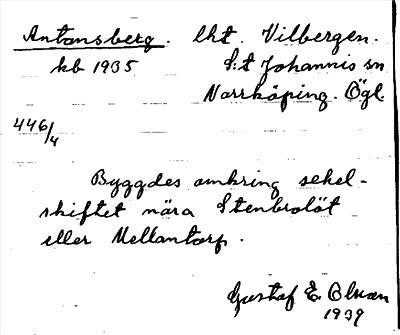 Antonsberg. lht. Vilbergen.
kb 1935 S:t Johannis sn
Norrköping. Ögl.
446/4
Byggdes omkring sekel-
skiftet nära Stenbrolöt
eller Mellantorp.
Gustaf E. Olsson
1939